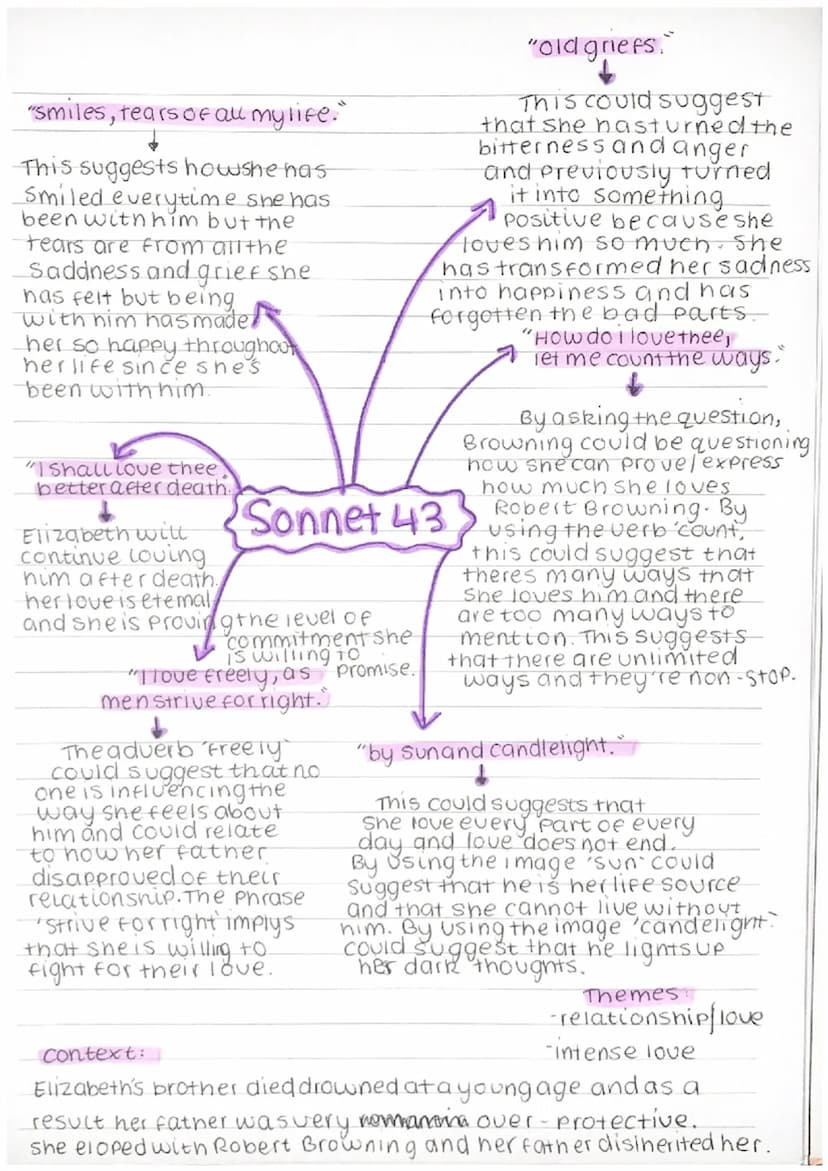 "old griefs."
This could suggest
that she has turned the
bitterness and anger
and previously turned
it into something
positive because she
loves him so much. She
has transformed her sadness
into happiness and has
forgotten the bad parts.
"smiles, tears of all my life."
This suggests how she has
smiled everytime she has
been with him but the
tears are from all the
saddness and grief she
has felt but being
with him has made
her so happy throughout
her life since she's
been with him.
"How do I love thee,
let me count the ways."
By asking the question,
Browning could be questioning
how she can prove/express
how much she loves
Robert Browning. By
using the verb 'count,'
this could suggest that
theres many ways that
she loves him and there
are too many ways to
mention. This suggests
that there are unlimited
ways and they're non-stop.
"I shall love thee
better after death.
Elizabeth will
continue loving
him after death.
her love is eternal
and she is proving the level of
commitment she
is willing to
promise.
Sonnet 43
"I love freely, as
men strive for right."
The adverb 'freely'
could suggest that no
one is influencing the
way she feels about
him and could relate
to how her father
disapproved of their
relationship. The phrase
'strive for right' implys
that she is willing to
fight for their love.
"by sun and candlelight."
This could suggests that
she love every part of every
day and love does not end.
By using the image 'sun' could
suggest that he is her life source
and that she cannot live without
him. By using the image 'candelight'
could suggest that he lights up
her dark thoughts.
Themes:
-relationship/love
-intense love
context:
Elizabeth's brother died drowned at a young age and as a
result her father was very over-protective.
she eloped with Robert Browning and her father disinherited her.